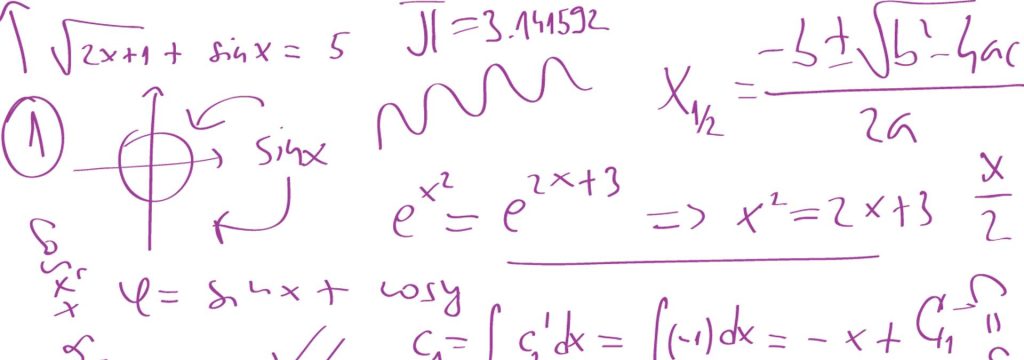 √2x+1 + sinx = 5
π = 3.141592
x₁/₂ = -b±√b²-4ac / 2a
①
sinx
e^x² = e^2x+3 => x² = 2x+3
x/2
φ = sinx + cosy
C₁ = ∫ C₁' dx = ∫(-1)dx = -x + C₁